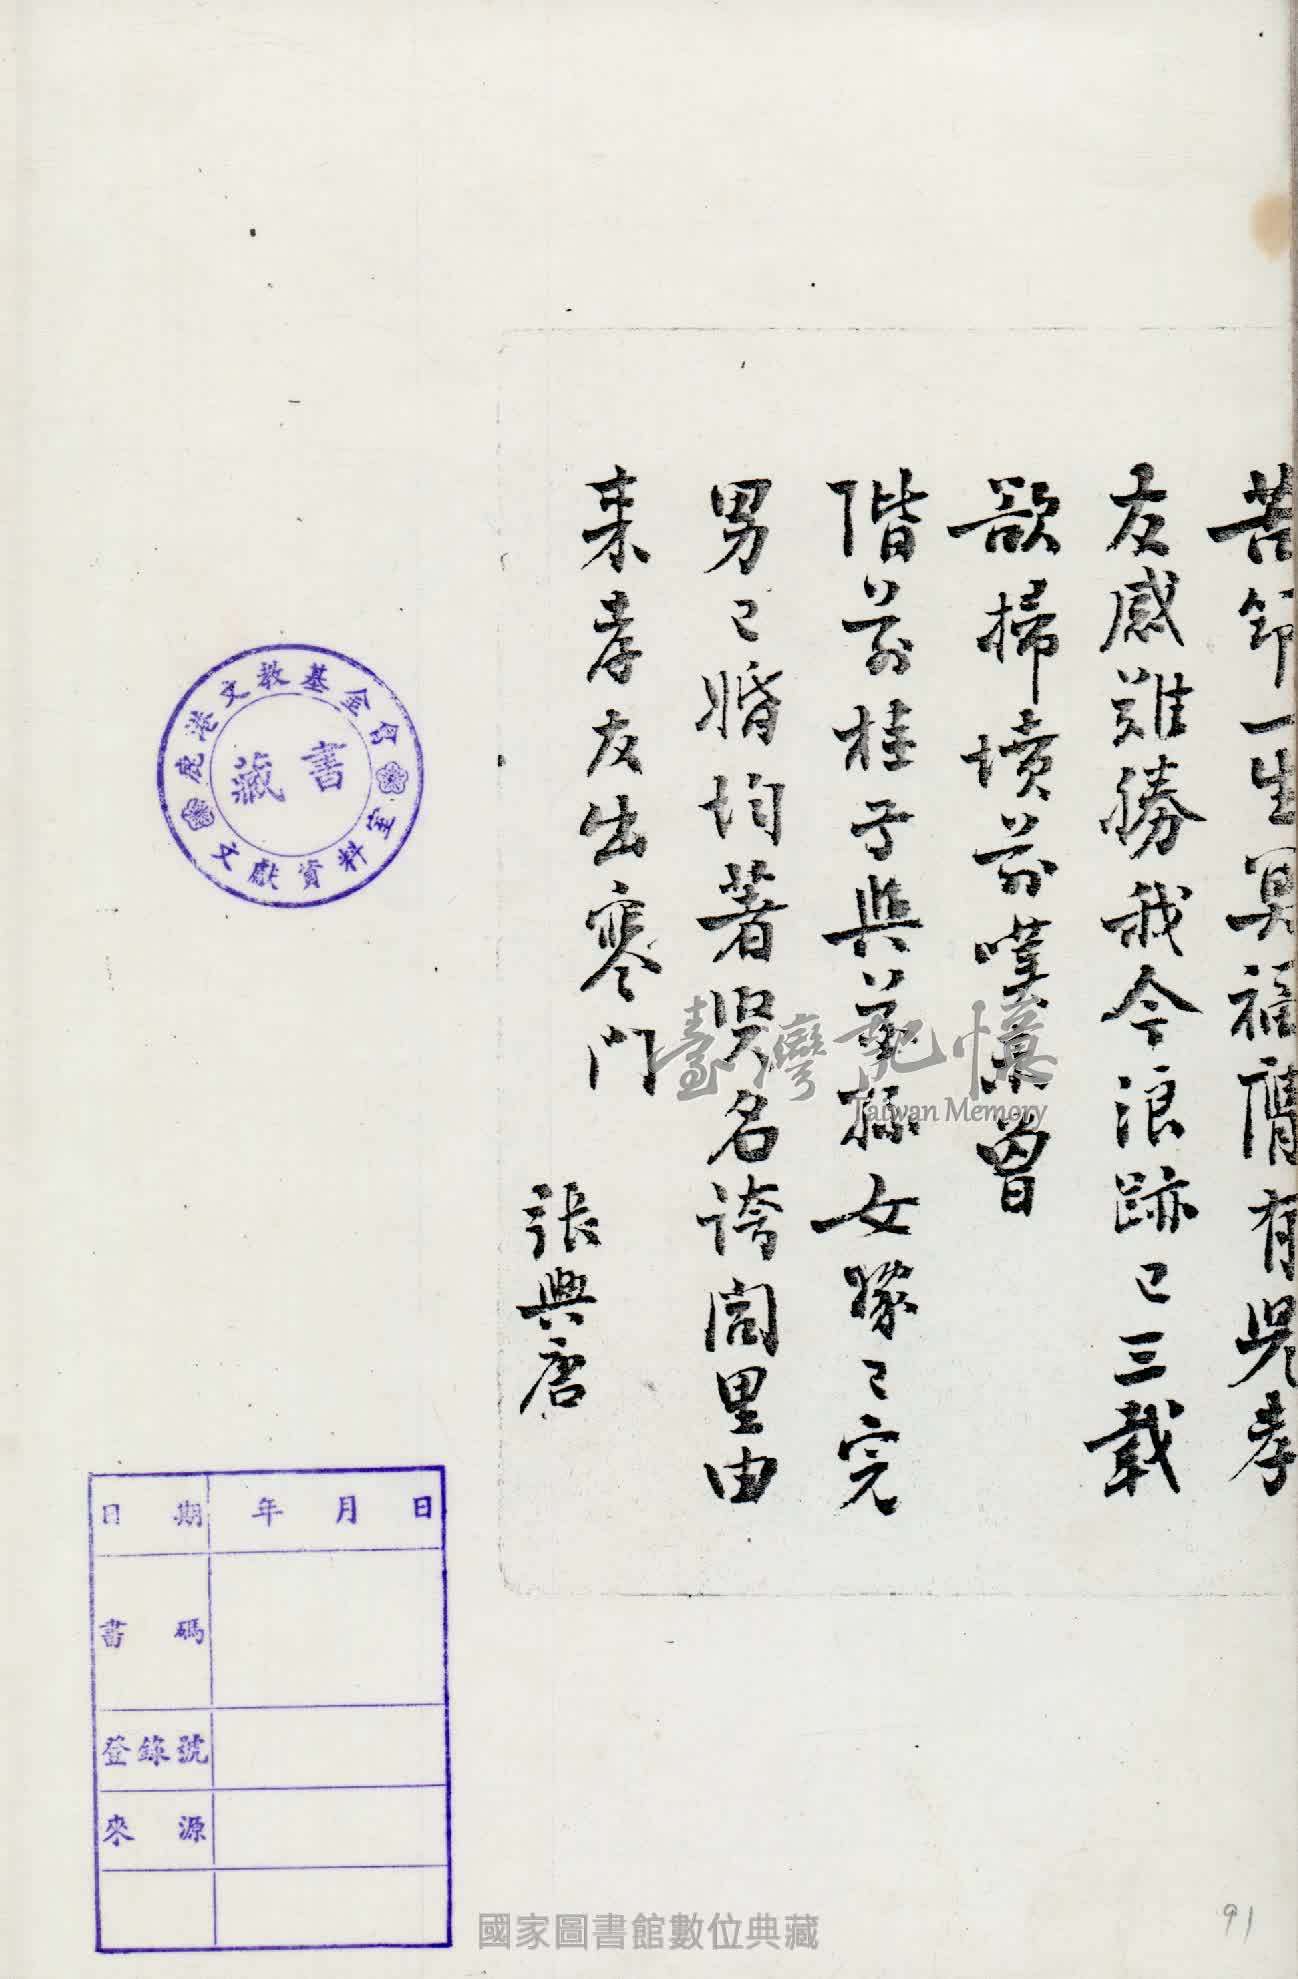 苦節一生冥福膺有兒孝
友感難勝我今浪跡已三載
欲掃墳前嘆未曾
階前桂子與蘭孫女嫁已完
男已婚均著異名誇閭里由
來孝友出寒門
張興唐
鹿港文教基金會
文獻資料室
藏書
臺灣記憶
Taiwan Memory
日期 年 月 日
書碼
登錄號
來源
國家圖書館數位典藏
91